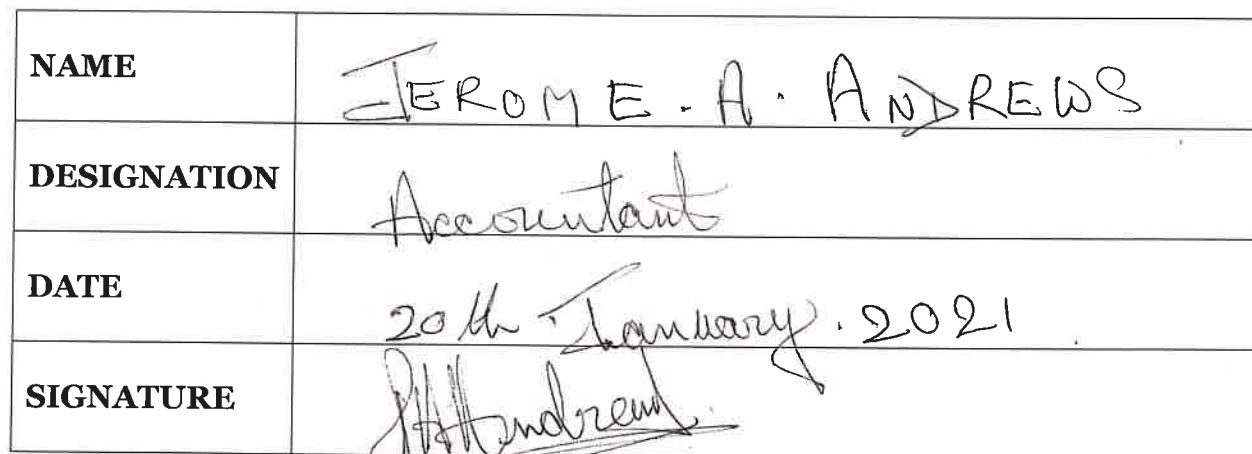 NAME JEROME. A. ANDREWS
DESIGNATION Accountant
DATE 20th January. 2021
SIGNATURE